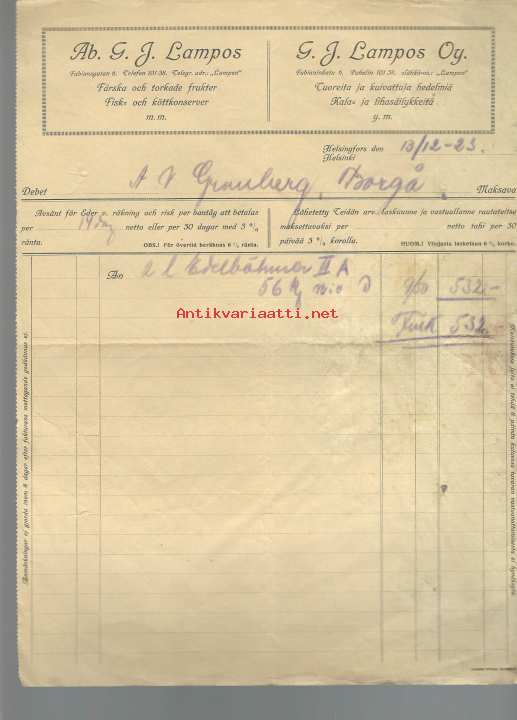 Ab. G. J. Lampos
Fabiansgatan 6. Telefon 101 38. Telegr. adr.: „Lampos"
Färska och torkade frukter
Fisk- och köttkonserver
m. m.
G. J. Lampos Oy.
Fabianinkatu 6. Puhelin 101 38. Sähkö-os.: „Lampos"
Tuoreita ja kuivattuja hedelmiä
Kala- ja lihasäilykkeitä
y. m.
Helsingfors den
Helsinki
13/12-23.
Debet
A V Granberg, Borgå
Maksava
Avsänt för Eder v. räkning och risk per bantåg att betalas
per 14 dag netto eller per 30 dagar med 5 %
ränta. OBS.! För övertid beräknas 6 % ränta.
Lähetetty Teidän arv. laskuunne ja vastuullanne rautateitse
maksettavaksi per netto tahi per 30
päivää 5 % korolla. HUOM.! Yliajasta lasketaan 6 % korko.
An 2 l Edelböhmer II A
56 kg D 9/50 532.-
Fmk 532.-
Antikvariaatti.net
Anmärkningar ej gjorda inom 8 dagar efter fakturans mottagande godkännas ej.